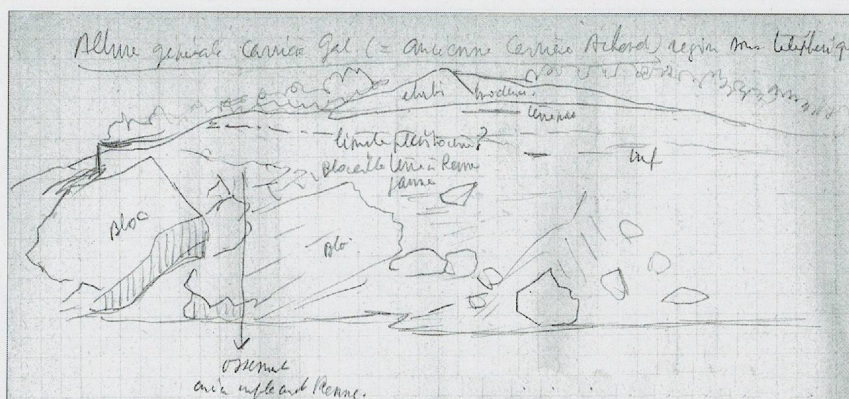 Allure générale carrière Gal (= ancienne Carrière Achard) région sous téléphérique
ébouli moderne
terrasse
limite pléistocène?
Blocaille terre à Renne
jaune
Bloc
Blo
ossement
Renne.